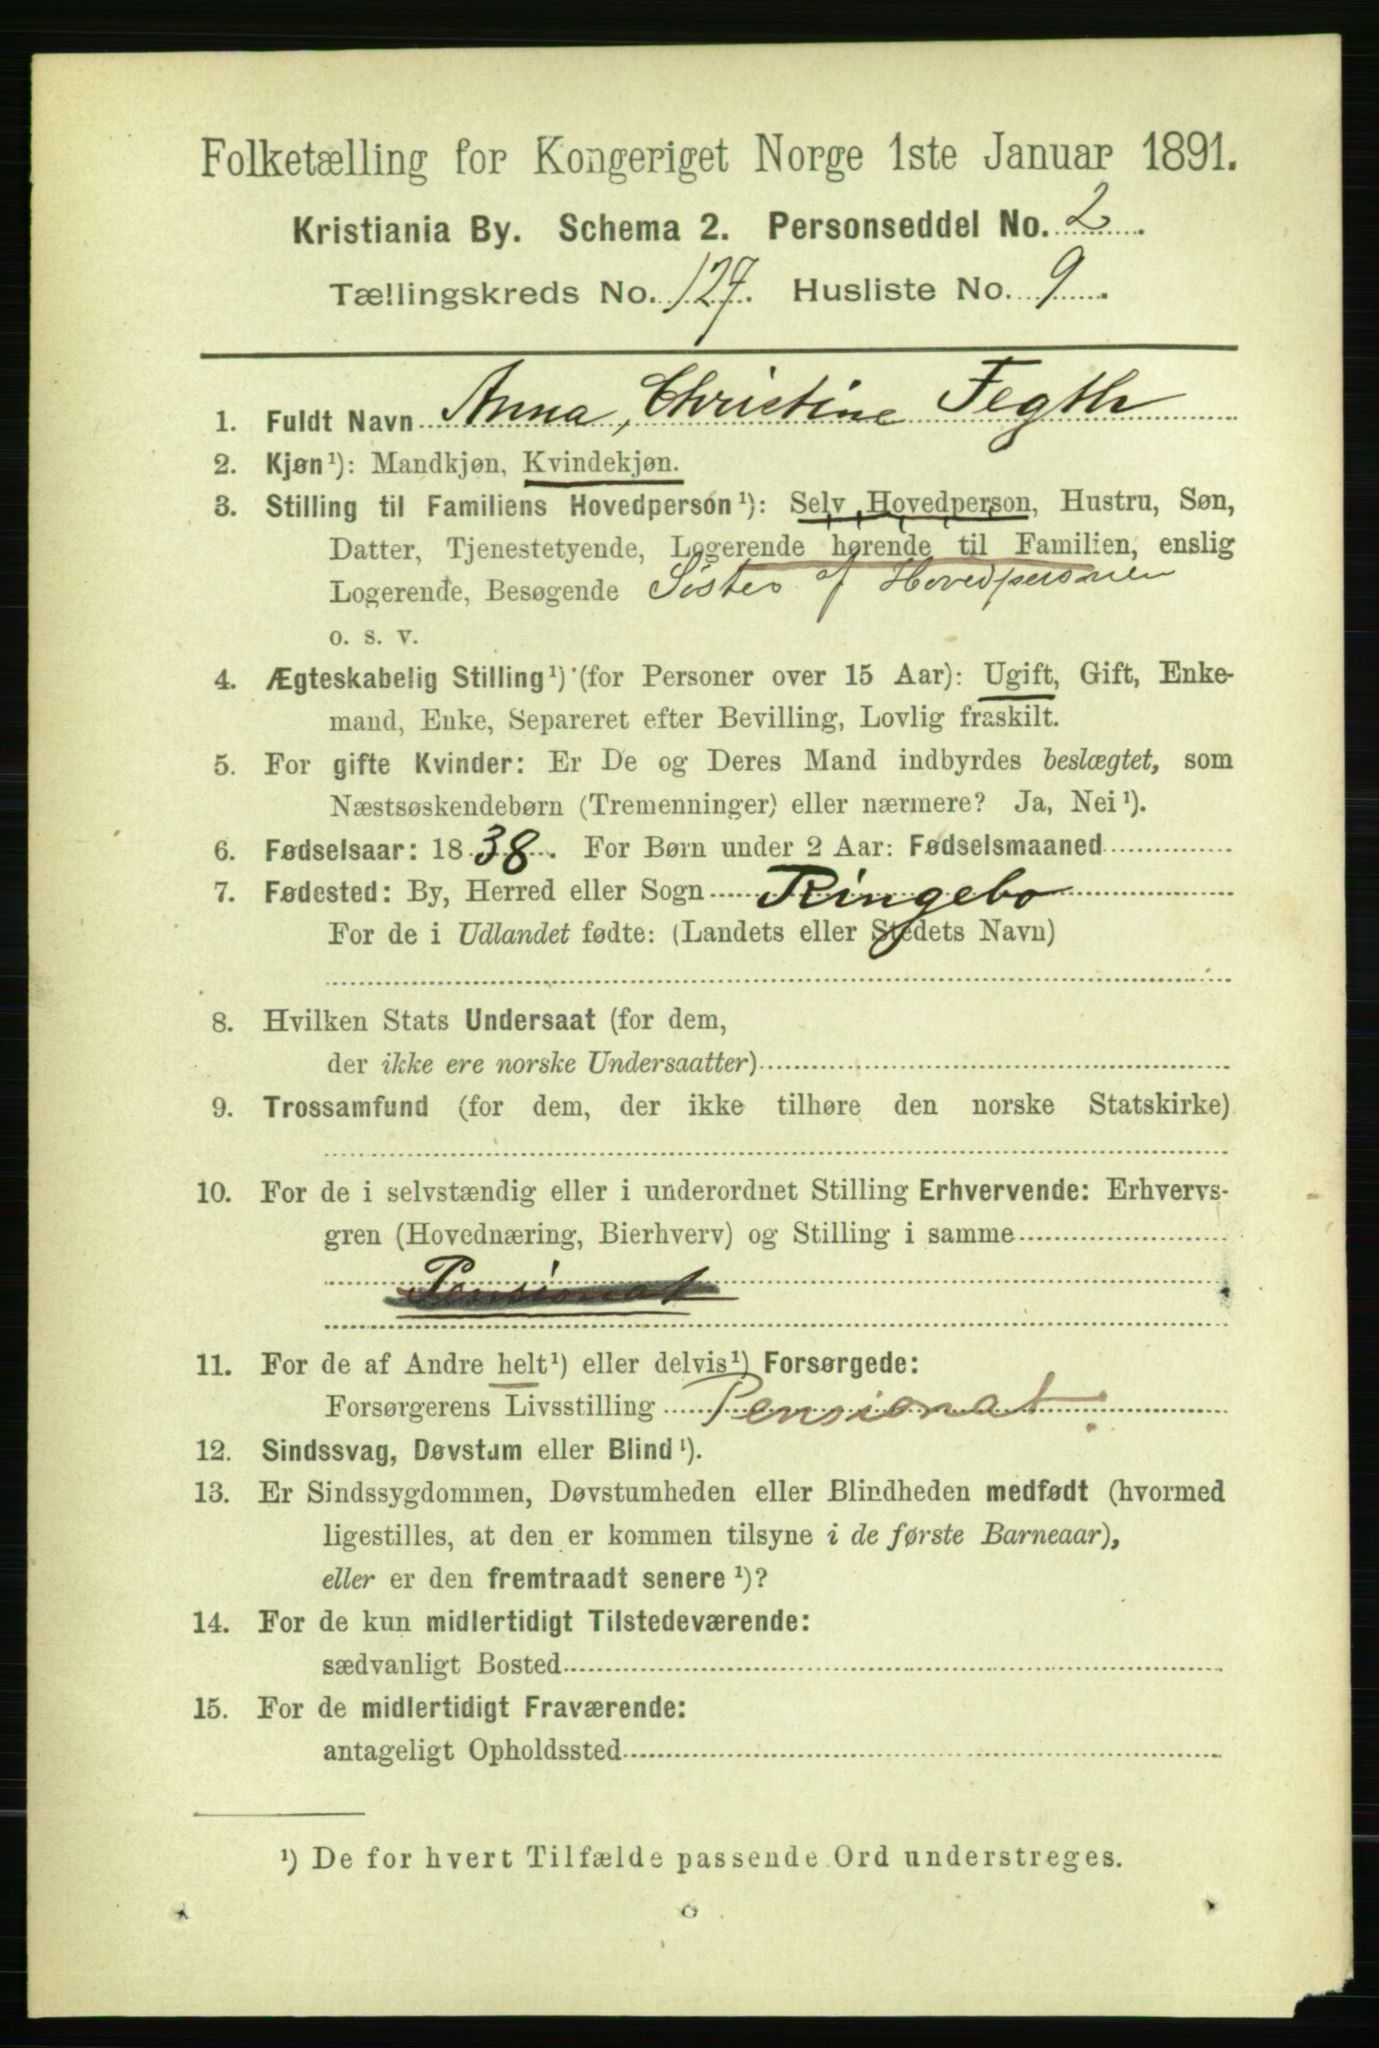 Folketælling for Kongeriget Norge 1ste Januar 1891.
Kristiania By. Schema 2. Personseddel No. 2.
Tællingskreds No. 127. Husliste No. 9.
1. Fuldt Navn Anna, Christine Fegth
2. Kjøn¹): Mandkjøn, Kvindekjøn.
3. Stilling til Familiens Hovedperson¹): Selv Hovedperson, Hustru, Søn,
Datter, Tjenestetyende, Logerende hørende til Familien, enslig
Logerende, Besøgende Sister af Hovedpersonen
o. s. v.
4. Ægteskabelig Stilling¹) (for Personer over 15 Aar): Ugift, Gift, Enke-
mand, Enke, Separeret efter Bevilling, Lovlig fraskilt.
5. For gifte Kvinder: Er De og Deres Mand indbyrdes beslægtet, som
Næstsøskendebørn (Tremenninger) eller nærmere? Ja, Nei¹).
6. Fødselsaar: 1838. For Børn under 2 Aar: Fødselsmaaned
7. Fødested: By, Herred eller Sogn Ringebo
For de i Udlandet fødte: (Landets eller Stedets Navn)
8. Hvilken Stats Undersaat (for dem,
der ikke ere norske Undersaatter)
9. Trossamfund (for dem, der ikke tilhøre den norske Statskirke)
10. For de i selvstændig eller i underordnet Stilling Erhvervende: Erhvervs-
gren (Hovednæring, Bierhverv) og Stilling i samme
Pensionat
11. For de af Andre helt¹) eller delvis¹) Forsørgede:
Forsørgerens Livsstilling Pensionat.
12. Sindssvag, Døvstum eller Blind¹).
13. Er Sindssygdommen, Døvstumheden eller Blindheden medfødt (hvormed
ligestilles, at den er kommen tilsyne i de første Barneaar),
eller er den fremtraadt senere¹)?
14. For de kun midlertidigt Tilstedeværende:
sædvanligt Bosted
15. For de midlertidigt Fraværende:
antageligt Opholdssted
¹) De for hvert Tilfælde passende Ord understreges.